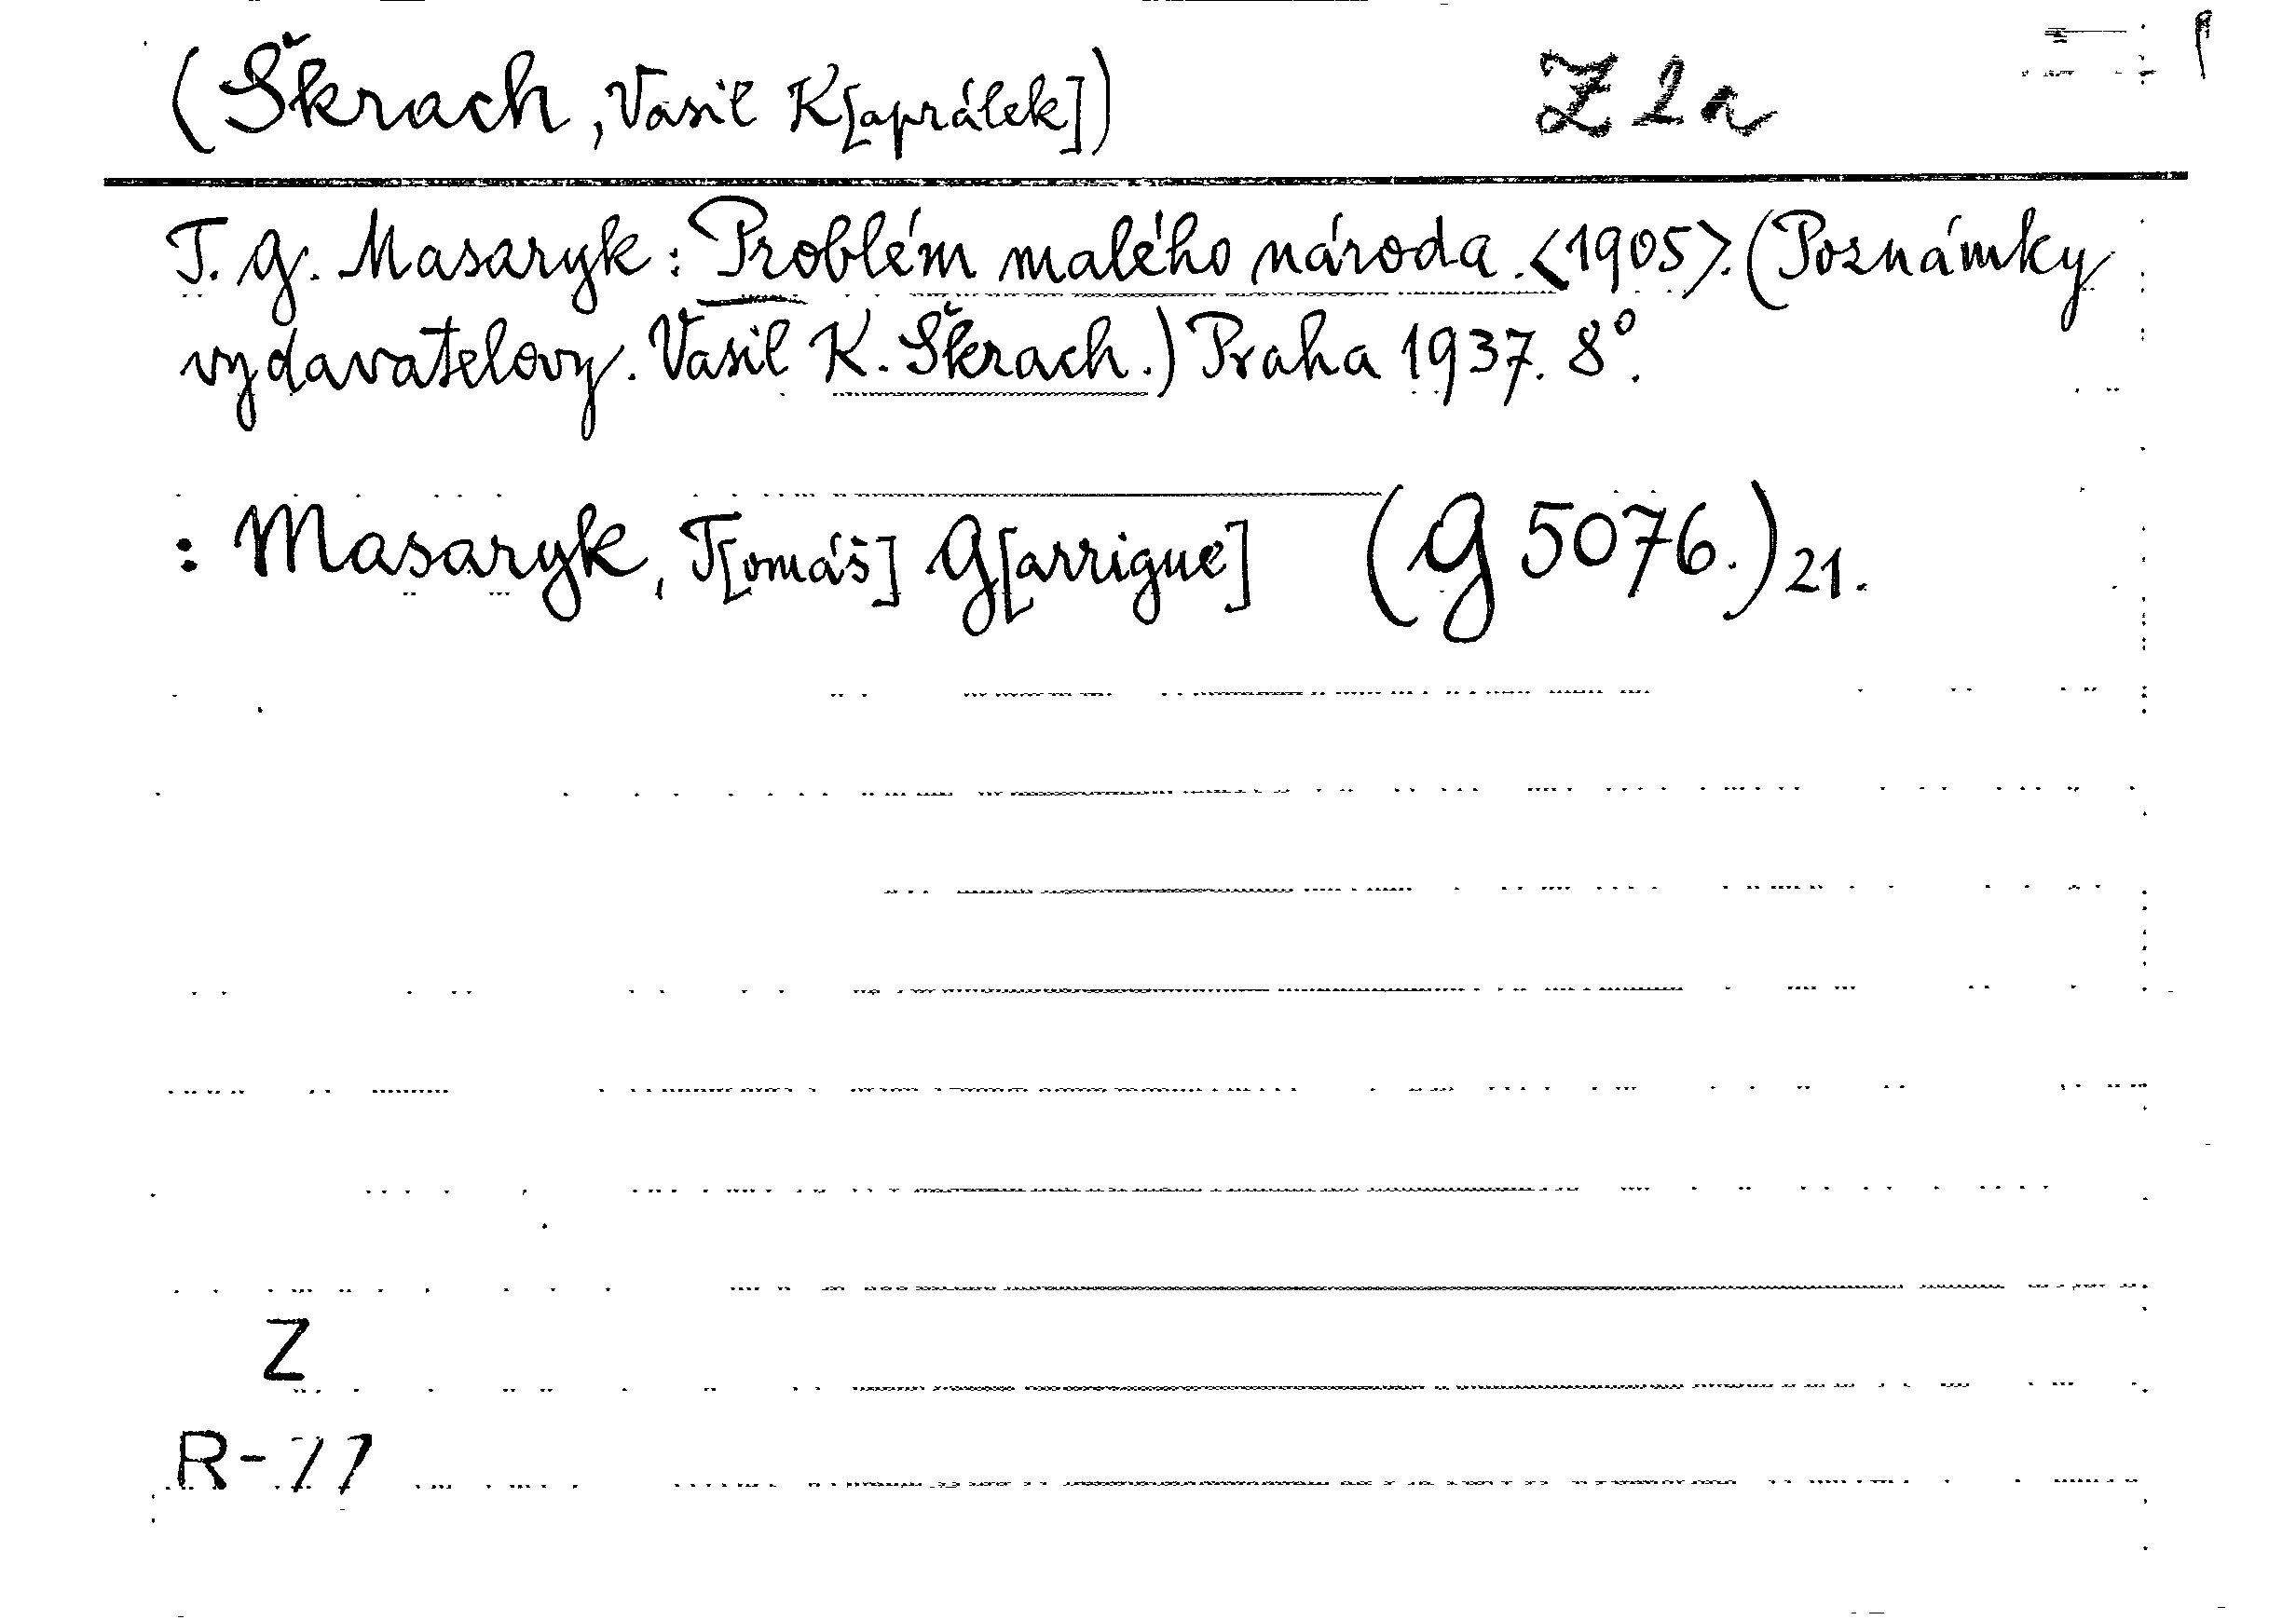 (Škrach, Vasil K[aprálek]) Z 2a
T. G. Masaryk: Problém malého národa. <1905>. (Poznámky
vydavatelovy. Vasil K. Škrach.) Praha 1937. 8°.
: Masaryk, T[omáš] G[arrigue] (G 5076.) 21.
Z
R-77